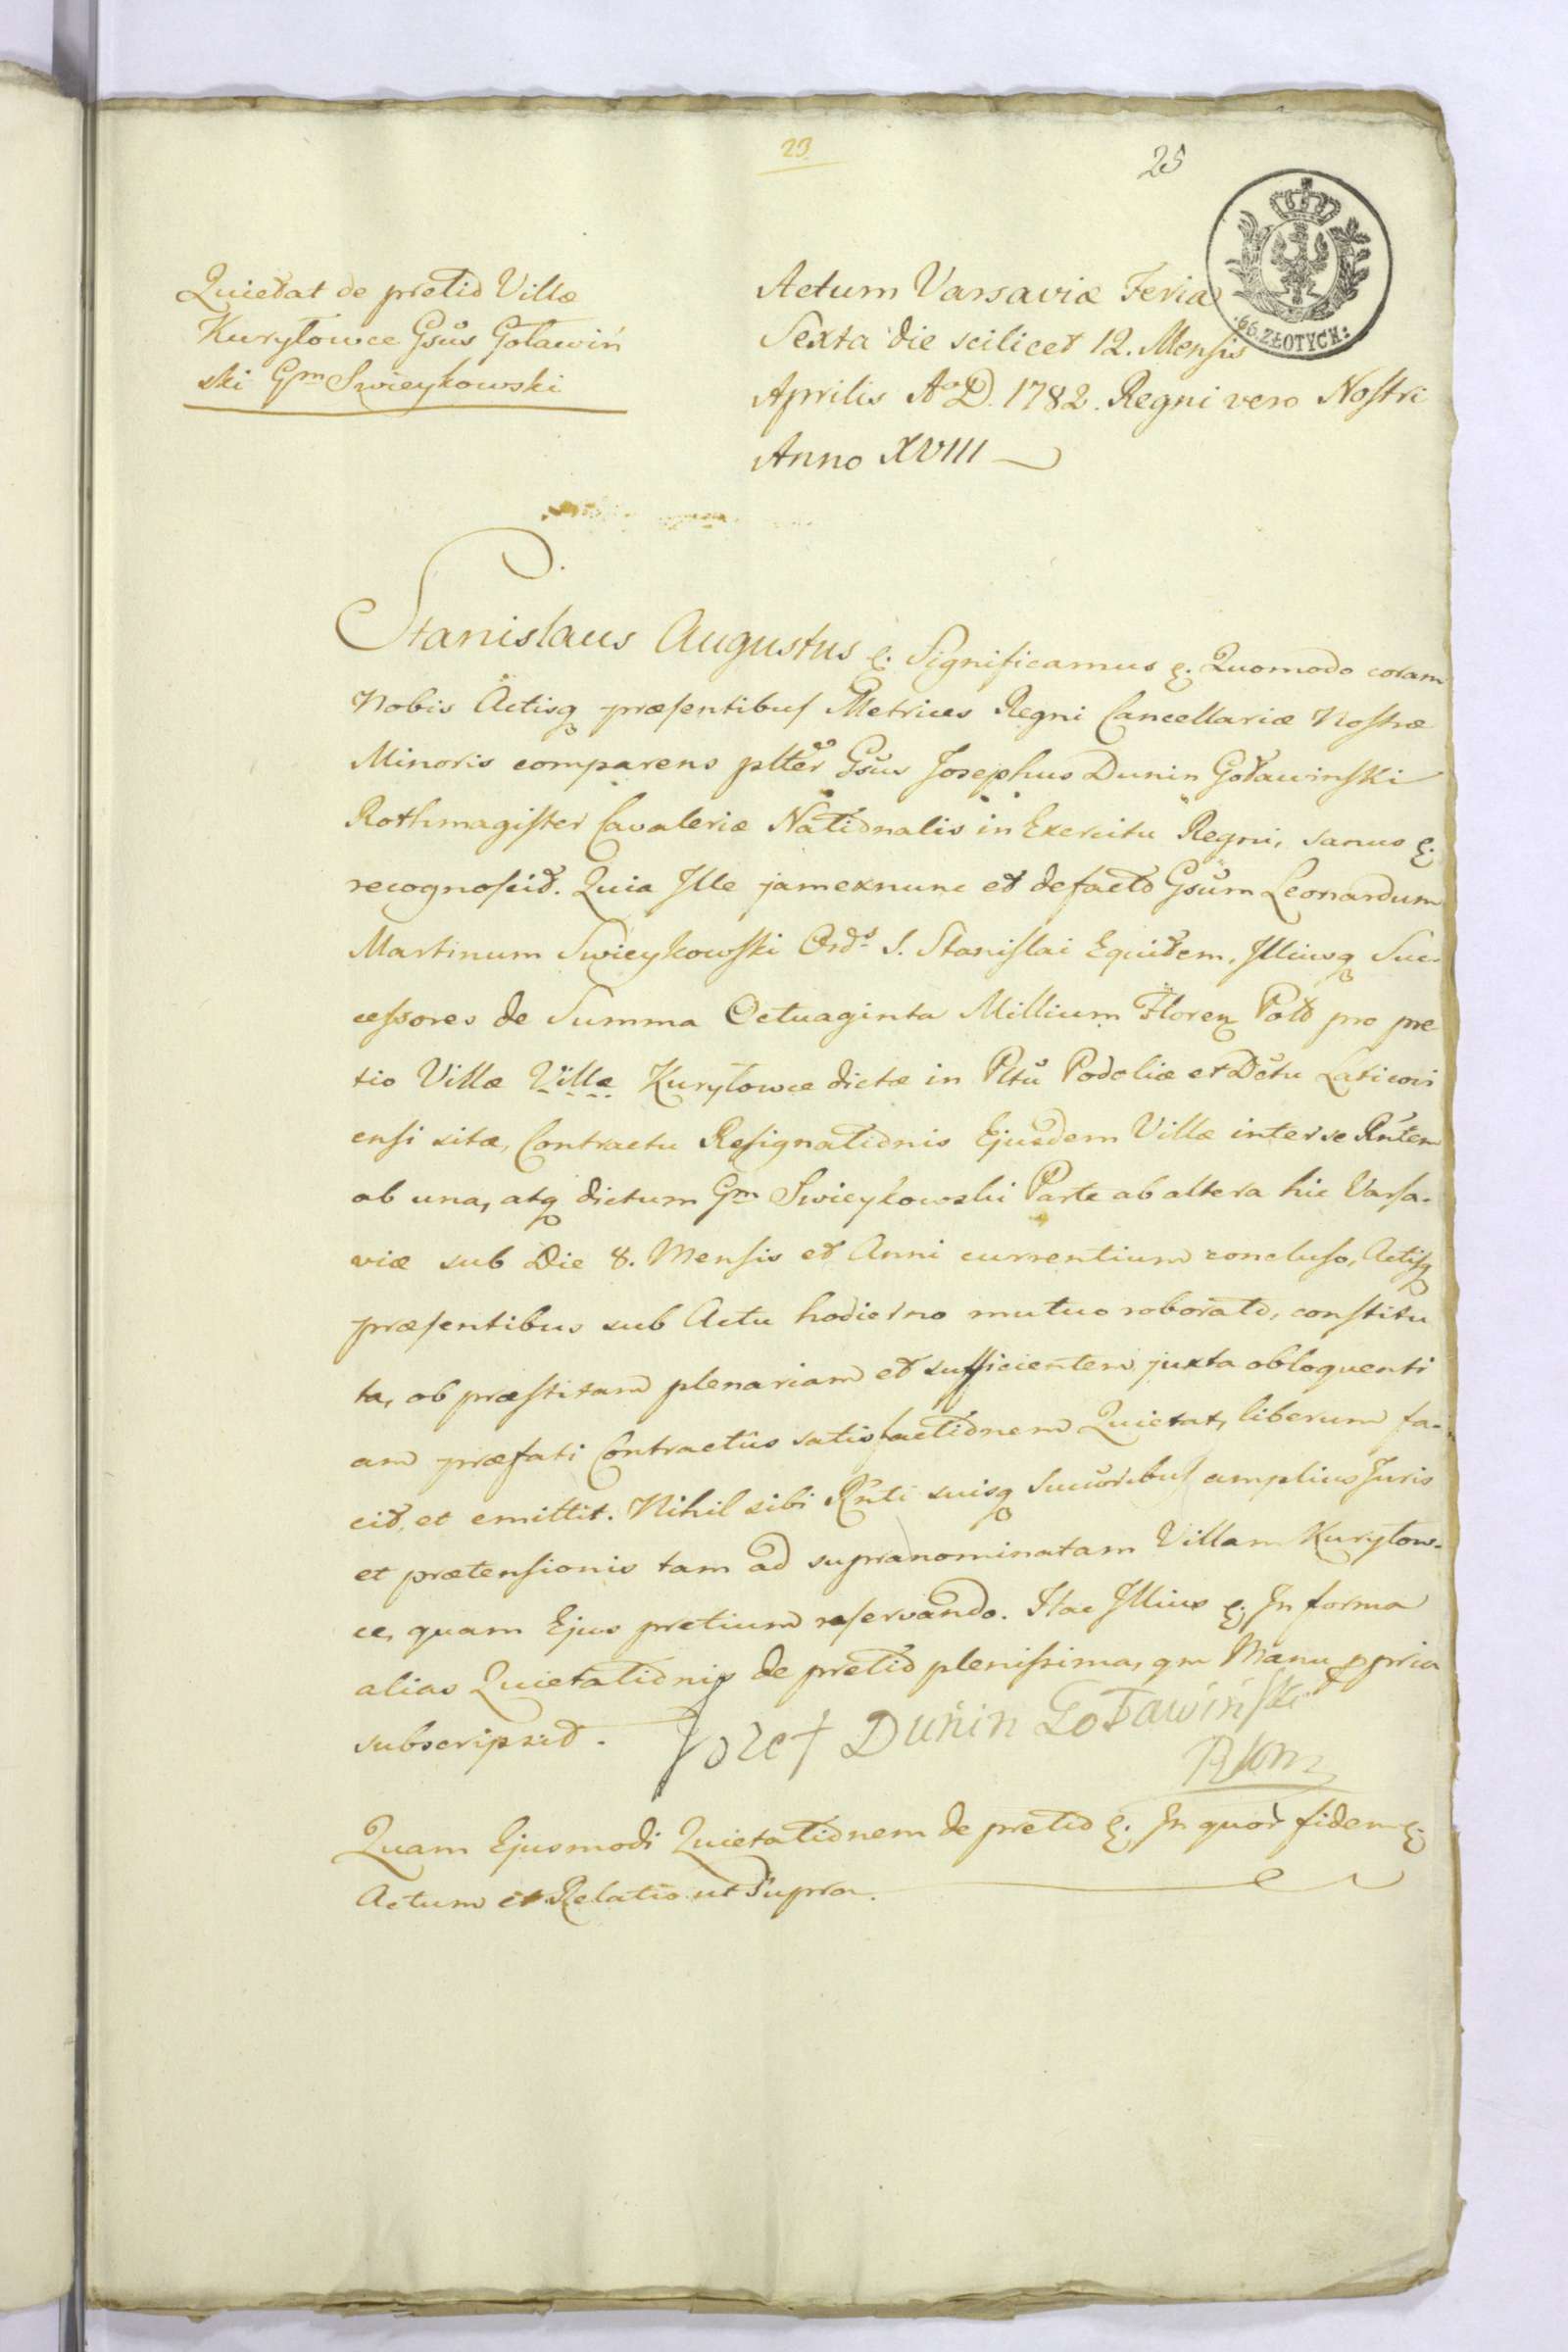 23
25
66. ZŁOTYCH:
Quietat de pretio Villæ
Kuryłowce Gsus Goławiń
ski Gm Swieykowski
Actum Varsaviæ Feria
Sexta die scilicet 12. Mensis
Aprilis Ao D. 1782. Regni vero Nostri
Anno XVIII
Stanislaus Augustus &. Significamus &. Quomodo coram
Nobis Actisq præsentibus Metrices Regni Cancellariæ Nostræ
Minoris comparens pltter Gsus Josephus Dunin Goławinski
Rothmagister Cavaleriæ Nationalis in Exercitu Regni, sanus &.
recognoscit. Quia Ille jam exnunc et defacto Gsum Leonardum
Martinum Swieykowski Ords S. Stanislai Equitem, Illiusq Suc-
cessores de Summa Octuaginta Millium Floren Pol pro pre
tio Villæ Villæ Kuryłowce dictæ in Pltu Podoliæ et Dctu Laticovi
ensi sitæ, Contractu Resignationis Ejusdem Villæ inter se Rntem
ab una, atq dictum Gm Swieykowski Parte ab altera hic Varsa-
viæ sub Die 8. Mensis et Anni currentium concluso, Actisq
præsentibus sub Actu hodierno mutuo roborato, constitu
ta, ob præstitam plenariam et sufficientem juxta obloquenti
am præfati Contractûs satisfactionem Quietat, liberum fa-
cit, et emittit. Nihil sibi Rnti suisq Succoribus amplius Juris
et prætensionis tam ad supranominatam Villam Kuryłow-
ce, quam Ejus pretium reservando. Hac Illius &. In forma
alias Quietationis de pretio plenissima, qm Manu ppria
subscripsit. Jozef Dunin Goławiński
RKN
Quam Ejusmodi Quietationem de pretio &. In quor fidem &.
Actum et Relatio ut Supra.